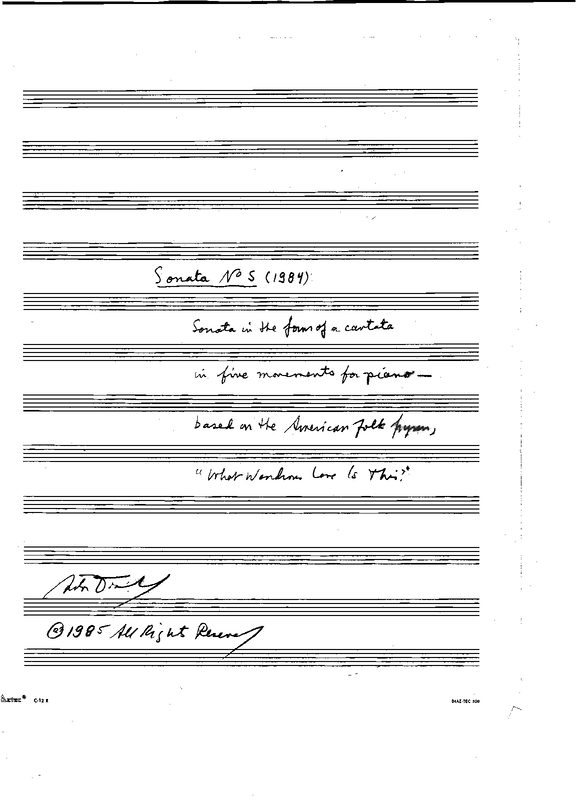 Sonata Nº 5 (1984)
Sonata in the form of a cantata
in five movements for piano —
based on the American folk hymn,
"What Wondrous Love Is This?"
© 1985 All Right Reserved
C-12 X
DIAZ-TEC 500